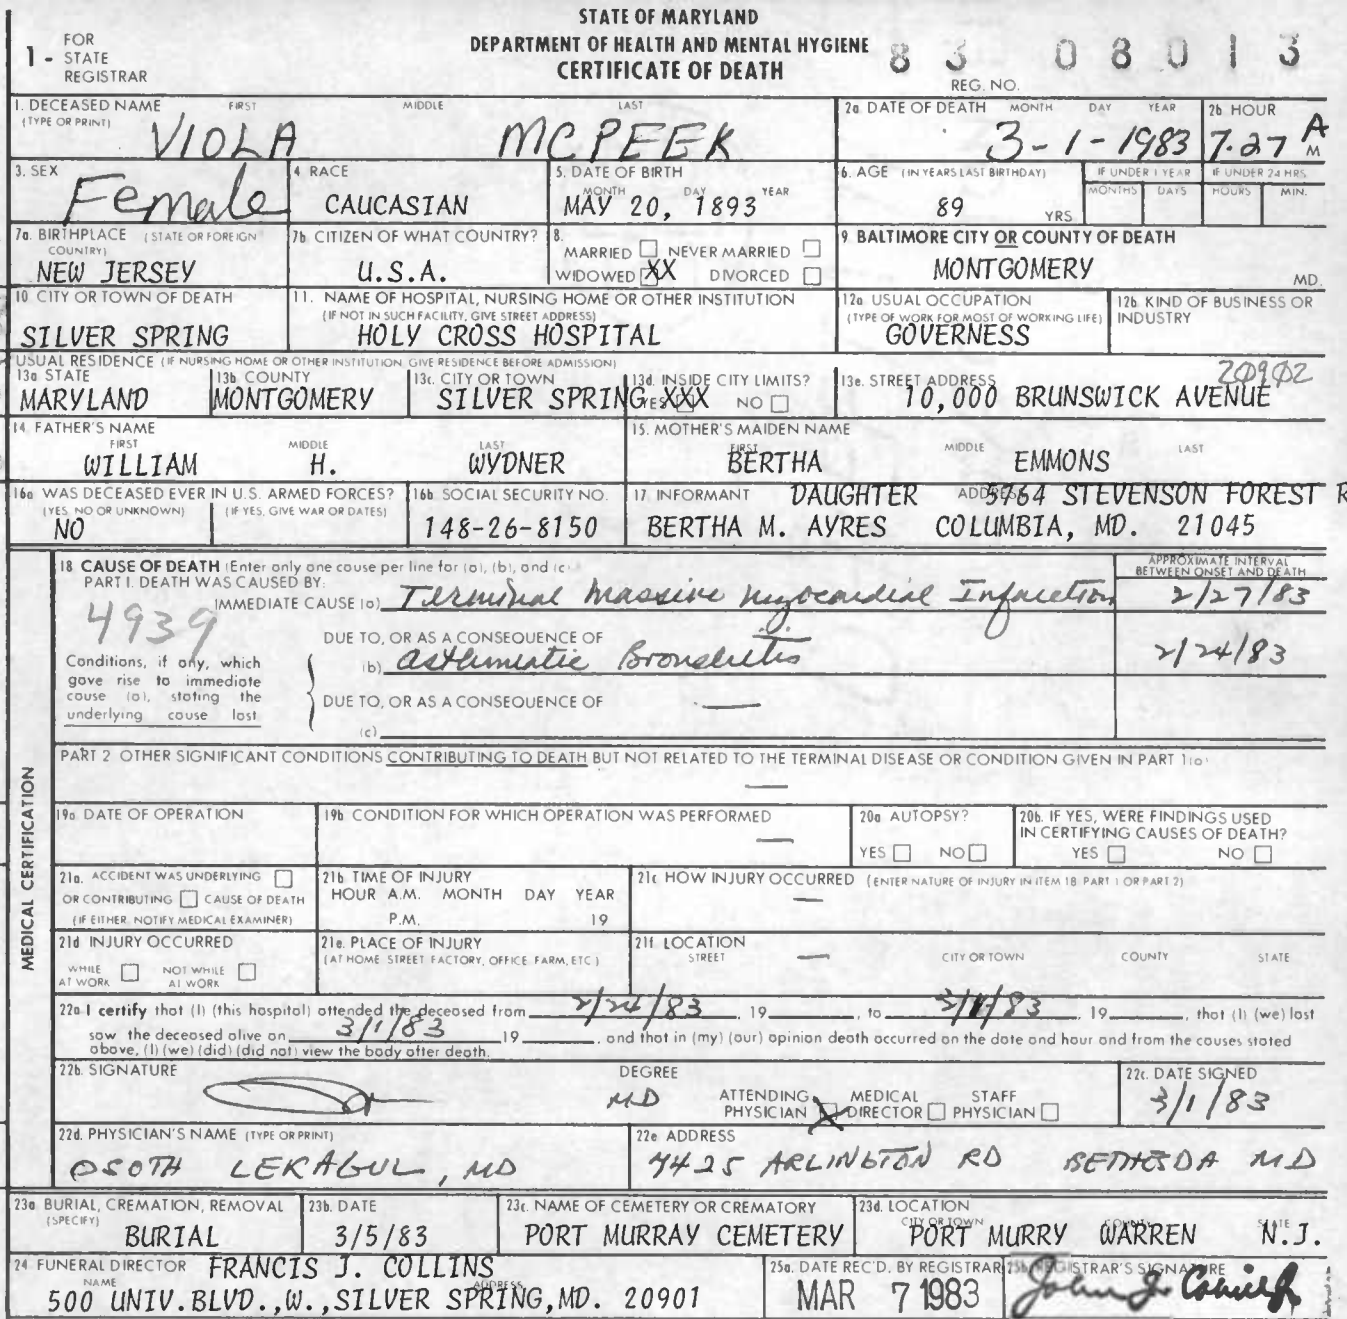 STATE OF MARYLAND
DEPARTMENT OF HEALTH AND MENTAL HYGIENE
CERTIFICATE OF DEATH
1 - FOR STATE REGISTRAR
83 08013
REG. NO.
1. DECEASED NAME FIRST MIDDLE LAST
(TYPE OR PRINT)
VIOLA MCPEEK
2a. DATE OF DEATH MONTH DAY YEAR
3-1-1983
2b HOUR
7.27 A M
3. SEX
Female
4 RACE
CAUCASIAN
5. DATE OF BIRTH
MONTH DAY YEAR
MAY 20, 1893
6. AGE (IN YEARS LAST BIRTHDAY)
89 YRS
IF UNDER 1 YEAR
MONTHS DAYS
IF UNDER 24 HRS
HOURS MIN.
7a. BIRTHPLACE (STATE OR FOREIGN COUNTRY)
NEW JERSEY
7b. CITIZEN OF WHAT COUNTRY?
U.S.A.
8.
MARRIED NEVER MARRIED
WIDOWED XX DIVORCED
9 BALTIMORE CITY OR COUNTY OF DEATH
MONTGOMERY MD.
10 CITY OR TOWN OF DEATH
SILVER SPRING
11. NAME OF HOSPITAL, NURSING HOME OR OTHER INSTITUTION
(IF NOT IN SUCH FACILITY, GIVE STREET ADDRESS)
HOLY CROSS HOSPITAL
12a. USUAL OCCUPATION
(TYPE OF WORK FOR MOST OF WORKING LIFE)
GOVERNESS
12b. KIND OF BUSINESS OR INDUSTRY
USUAL RESIDENCE (IF NURSING HOME OR OTHER INSTITUTION GIVE RESIDENCE BEFORE ADMISSION)
13a STATE
MARYLAND
13b COUNTY
MONTGOMERY
13c. CITY OR TOWN
SILVER SPRING
13d. INSIDE CITY LIMITS?
YES XXX NO
13e. STREET ADDRESS
20902
10,000 BRUNSWICK AVENUE
14. FATHER'S NAME
FIRST MIDDLE LAST
WILLIAM H. WYDNER
15. MOTHER'S MAIDEN NAME
FIRST MIDDLE LAST
BERTHA EMMONS
16a WAS DECEASED EVER IN U.S. ARMED FORCES?
(YES, NO OR UNKNOWN) (IF YES, GIVE WAR OR DATES)
NO
16b SOCIAL SECURITY NO.
148-26-8150
17. INFORMANT DAUGHTER ADDRESS 5764 STEVENSON FOREST R
BERTHA M. AYRES COLUMBIA, MD. 21045
MEDICAL CERTIFICATION
18 CAUSE OF DEATH (Enter only one cause per line for (a), (b), and (c)
APPROXIMATE INTERVAL BETWEEN ONSET AND DEATH
PART I. DEATH WAS CAUSED BY:
IMMEDIATE CAUSE (a) Terminal Massive Myocardial Infarction 2/27/83
4939
DUE TO, OR AS A CONSEQUENCE OF
(b) Asthmatic Bronchitis 2/24/83
Conditions, if any, which gave rise to immediate cause (a), stating the underlying cause last
DUE TO, OR AS A CONSEQUENCE OF —
(c)
PART 2 OTHER SIGNIFICANT CONDITIONS CONTRIBUTING TO DEATH BUT NOT RELATED TO THE TERMINAL DISEASE OR CONDITION GIVEN IN PART 1(a)
—
19a DATE OF OPERATION
19b CONDITION FOR WHICH OPERATION WAS PERFORMED
—
20a AUTOPSY?
YES NO
20b. IF YES, WERE FINDINGS USED IN CERTIFYING CAUSES OF DEATH?
YES NO
21a. ACCIDENT WAS UNDERLYING
OR CONTRIBUTING CAUSE OF DEATH
(IF EITHER, NOTIFY MEDICAL EXAMINER)
21b TIME OF INJURY
HOUR A.M. MONTH DAY YEAR
P.M. 19
21c HOW INJURY OCCURRED (ENTER NATURE OF INJURY IN ITEM 18 PART 1 OR PART 2)
—
21d INJURY OCCURRED
WHILE AT WORK NOT WHILE AT WORK
21e. PLACE OF INJURY
(AT HOME STREET FACTORY, OFFICE FARM, ETC)
21f. LOCATION
STREET — CITY OR TOWN COUNTY STATE
22a I certify that (I) (this hospital) attended the deceased from 2/24/83, 19 , to 3/1/83, 19 , that (I) (we) last
saw the deceased alive on 3/1/83 19 , and that in (my) (our) opinion death occurred on the date and hour and from the causes stated
above, (I) (we) (did) (did not) view the body after death.
22b. SIGNATURE
DEGREE
MD
ATTENDING PHYSICIAN X MEDICAL DIRECTOR STAFF PHYSICIAN
22c. DATE SIGNED
3/1/83
22d. PHYSICIAN'S NAME (TYPE OR PRINT)
OSOTH LEKAGUL, MD
22e ADDRESS
7425 ARLINGTON RD BETHESDA MD
23a BURIAL, CREMATION, REMOVAL
(SPECIFY)
BURIAL
23b. DATE
3/5/83
23c. NAME OF CEMETERY OR CREMATORY
PORT MURRAY CEMETERY
23d. LOCATION
CITY OR TOWN COUNTY STATE
PORT MURRY WARREN N.J.
24 FUNERAL DIRECTOR FRANCIS J. COLLINS
NAME ADDRESS
500 UNIV.BLVD.,W.,SILVER SPRING,MD. 20901
25a. DATE REC'D. BY REGISTRAR
MAR 7 1983
25b. REGISTRAR'S SIGNATURE
John J.